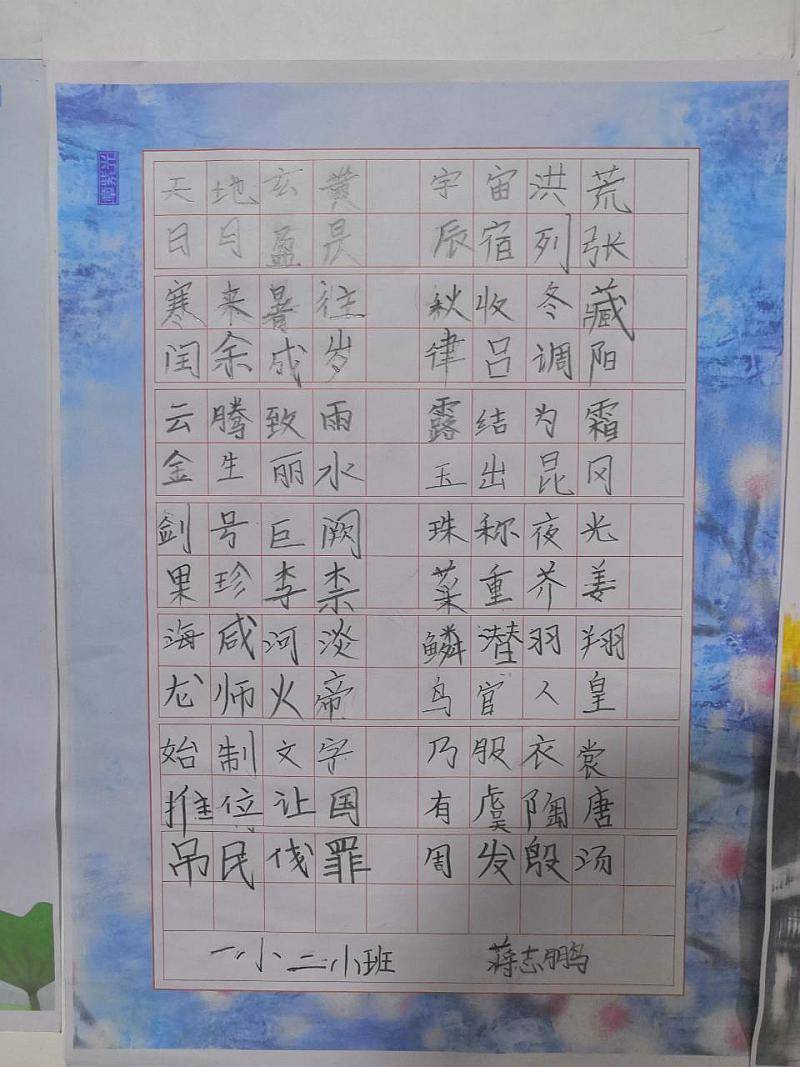 天地玄黄 宇宙洪荒
日月盈昃 辰宿列张
寒来暑往 秋收冬藏
闰余成岁 律吕调阳
云腾致雨 露结为霜
金生丽水 玉出昆冈
剑号巨阙 珠称夜光
果珍李柰 菜重芥姜
海咸河淡 鳞潜羽翔
龙师火帝 鸟官人皇
始制文字 乃服衣裳
推位让国 有虞陶唐
吊民伐罪 周发殷汤
一小二小班 蒋志鹏